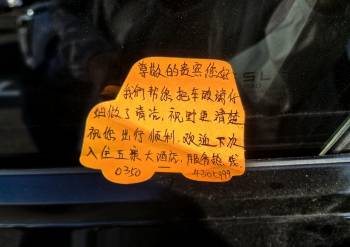 尊敬的贵宾您好
我們帮您把车玻璃仔
细做了清洁,视野更清楚
祝您出行顺利,欢迎下次
入住五泉大酒店,服务热线
0350 — 4305999
SL